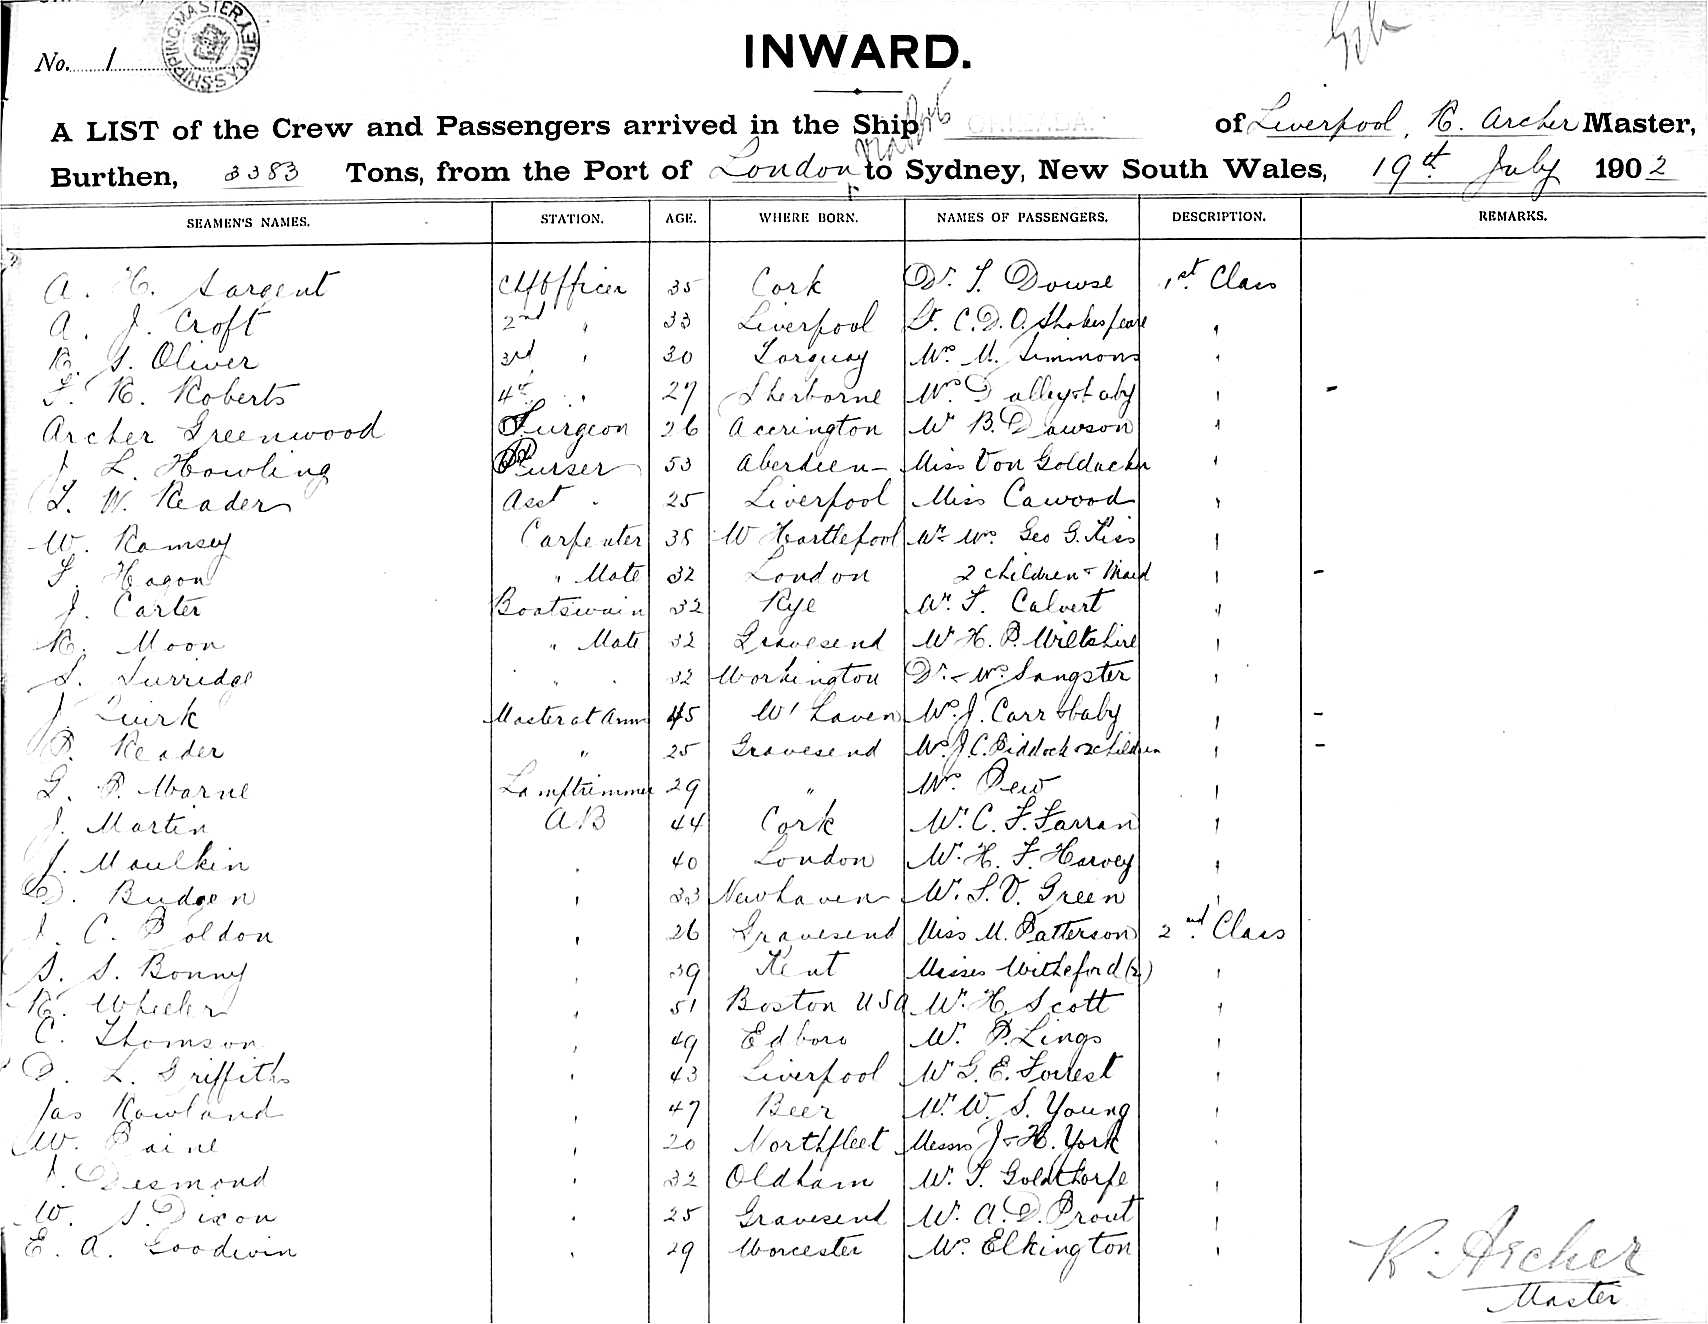 No. 1
SHIPPING MASTER SYDNEY
INWARD.
A LIST of the Crew and Passengers arrived in the Ship of Liverpool, R. Archer Master,
Burthen, 3383 Tons, from the Port of London to Sydney, New South Wales, 19th July 1902
SEAMEN'S NAMES. STATION. AGE. WHERE BORN. NAMES OF PASSENGERS. DESCRIPTION. REMARKS.
A. H. Sargent Chf Officer 35 Cork Dr. T. Dowse 1st Class
A. J. Croft 2nd " 33 Liverpool Lt. C. D. O. Shakespeare "
R. G. Oliver 3rd " 30 Torquay Mrs M. Simmons "
F. R. Roberts 4th " 27 Sherborne Mrs Dalley & baby " -
Archer Greenwood Surgeon 26 Accrington Mr B. Dawson "
J. L. Howling Purser 53 Aberdeen Miss Von Goldacker "
L. W. Reader Asst " 25 Liverpool Miss Cawood "
W. Ramsey Carpenter 38 W Hartlepool Mr Mrs Geo G. Kiss "
F. Hagon " Mate 32 London 2 children & Maid " -
J. Carter Boatswain 32 Rye Mr. F. Calvert "
R. Moon " Mate 32 Gravesend Mr H. P. Wiltshire "
S. Surridge " " 32 Workington Dr. & Mrs Sangster "
J. Quirk Master at Arms 45 W'haven Mrs J. Carr & baby " -
P. Reader " 25 Gravesend Mrs J. C. Piddock & 2 children " -
G. P. Warne Lamptrimmer 29 " Mrs Pew "
J. Martin AB 44 Cork Mr. C. F. Farran "
J. Maulkin " 40 London Mr. H. F. Harvey "
D. Budgen " 33 Newhaven Mr. S. V. Green "
J. C. Boldon " 26 Gravesend Miss M. Patterson 2nd Class
S. S. Bonny " 39 Kent Misses Witheford (2) "
R. Wheeler " 51 Boston USA Mr. H. Scott "
C. Thomson " 49 Edboro Mr. P. Lings "
D. L. Griffiths " 43 Liverpool Mr G. E. Forrest "
Jas Rowland " 47 Beer Mr. W. S. Young "
W. Paine " 20 Northfleet Messrs J & H. York "
J. Desmond " 32 Oldham Mr. T. Goldthorpe "
W. S. Dixon " 25 Gravesend Mr. A. D. Prout "
E. A. Goodwin " 29 Worcester Mrs Elkington "
R. Archer
Master